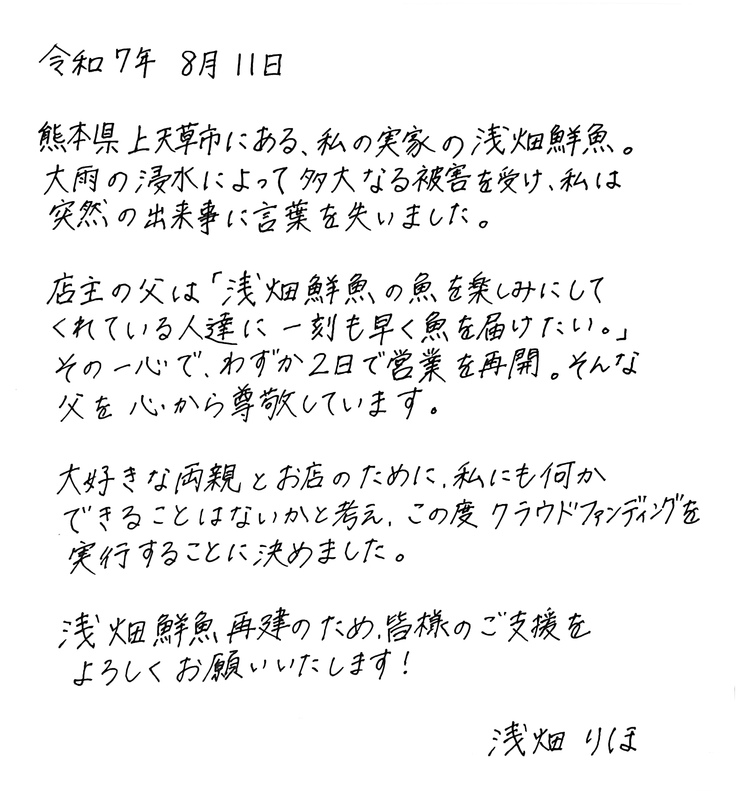 令和7年 8月11日
熊本県上天草市にある、私の実家の浅畑鮮魚。
大雨の浸水によって多大なる被害を受け、私は
突然の出来事に言葉を失いました。
店主の父は「浅畑鮮魚の魚を楽しみにして
くれている人達に一刻も早く魚を届けたい。」
その一心で、わずか2日で営業を再開。そんな
父を心から尊敬しています。
大好きな両親とお店のために、私にも何か
できることはないかと考え、この度クラウドファンディングを
実行することに決めました。
浅畑鮮魚再建のため、皆様のご支援を
よろしくお願いいたします!
浅畑 りほ